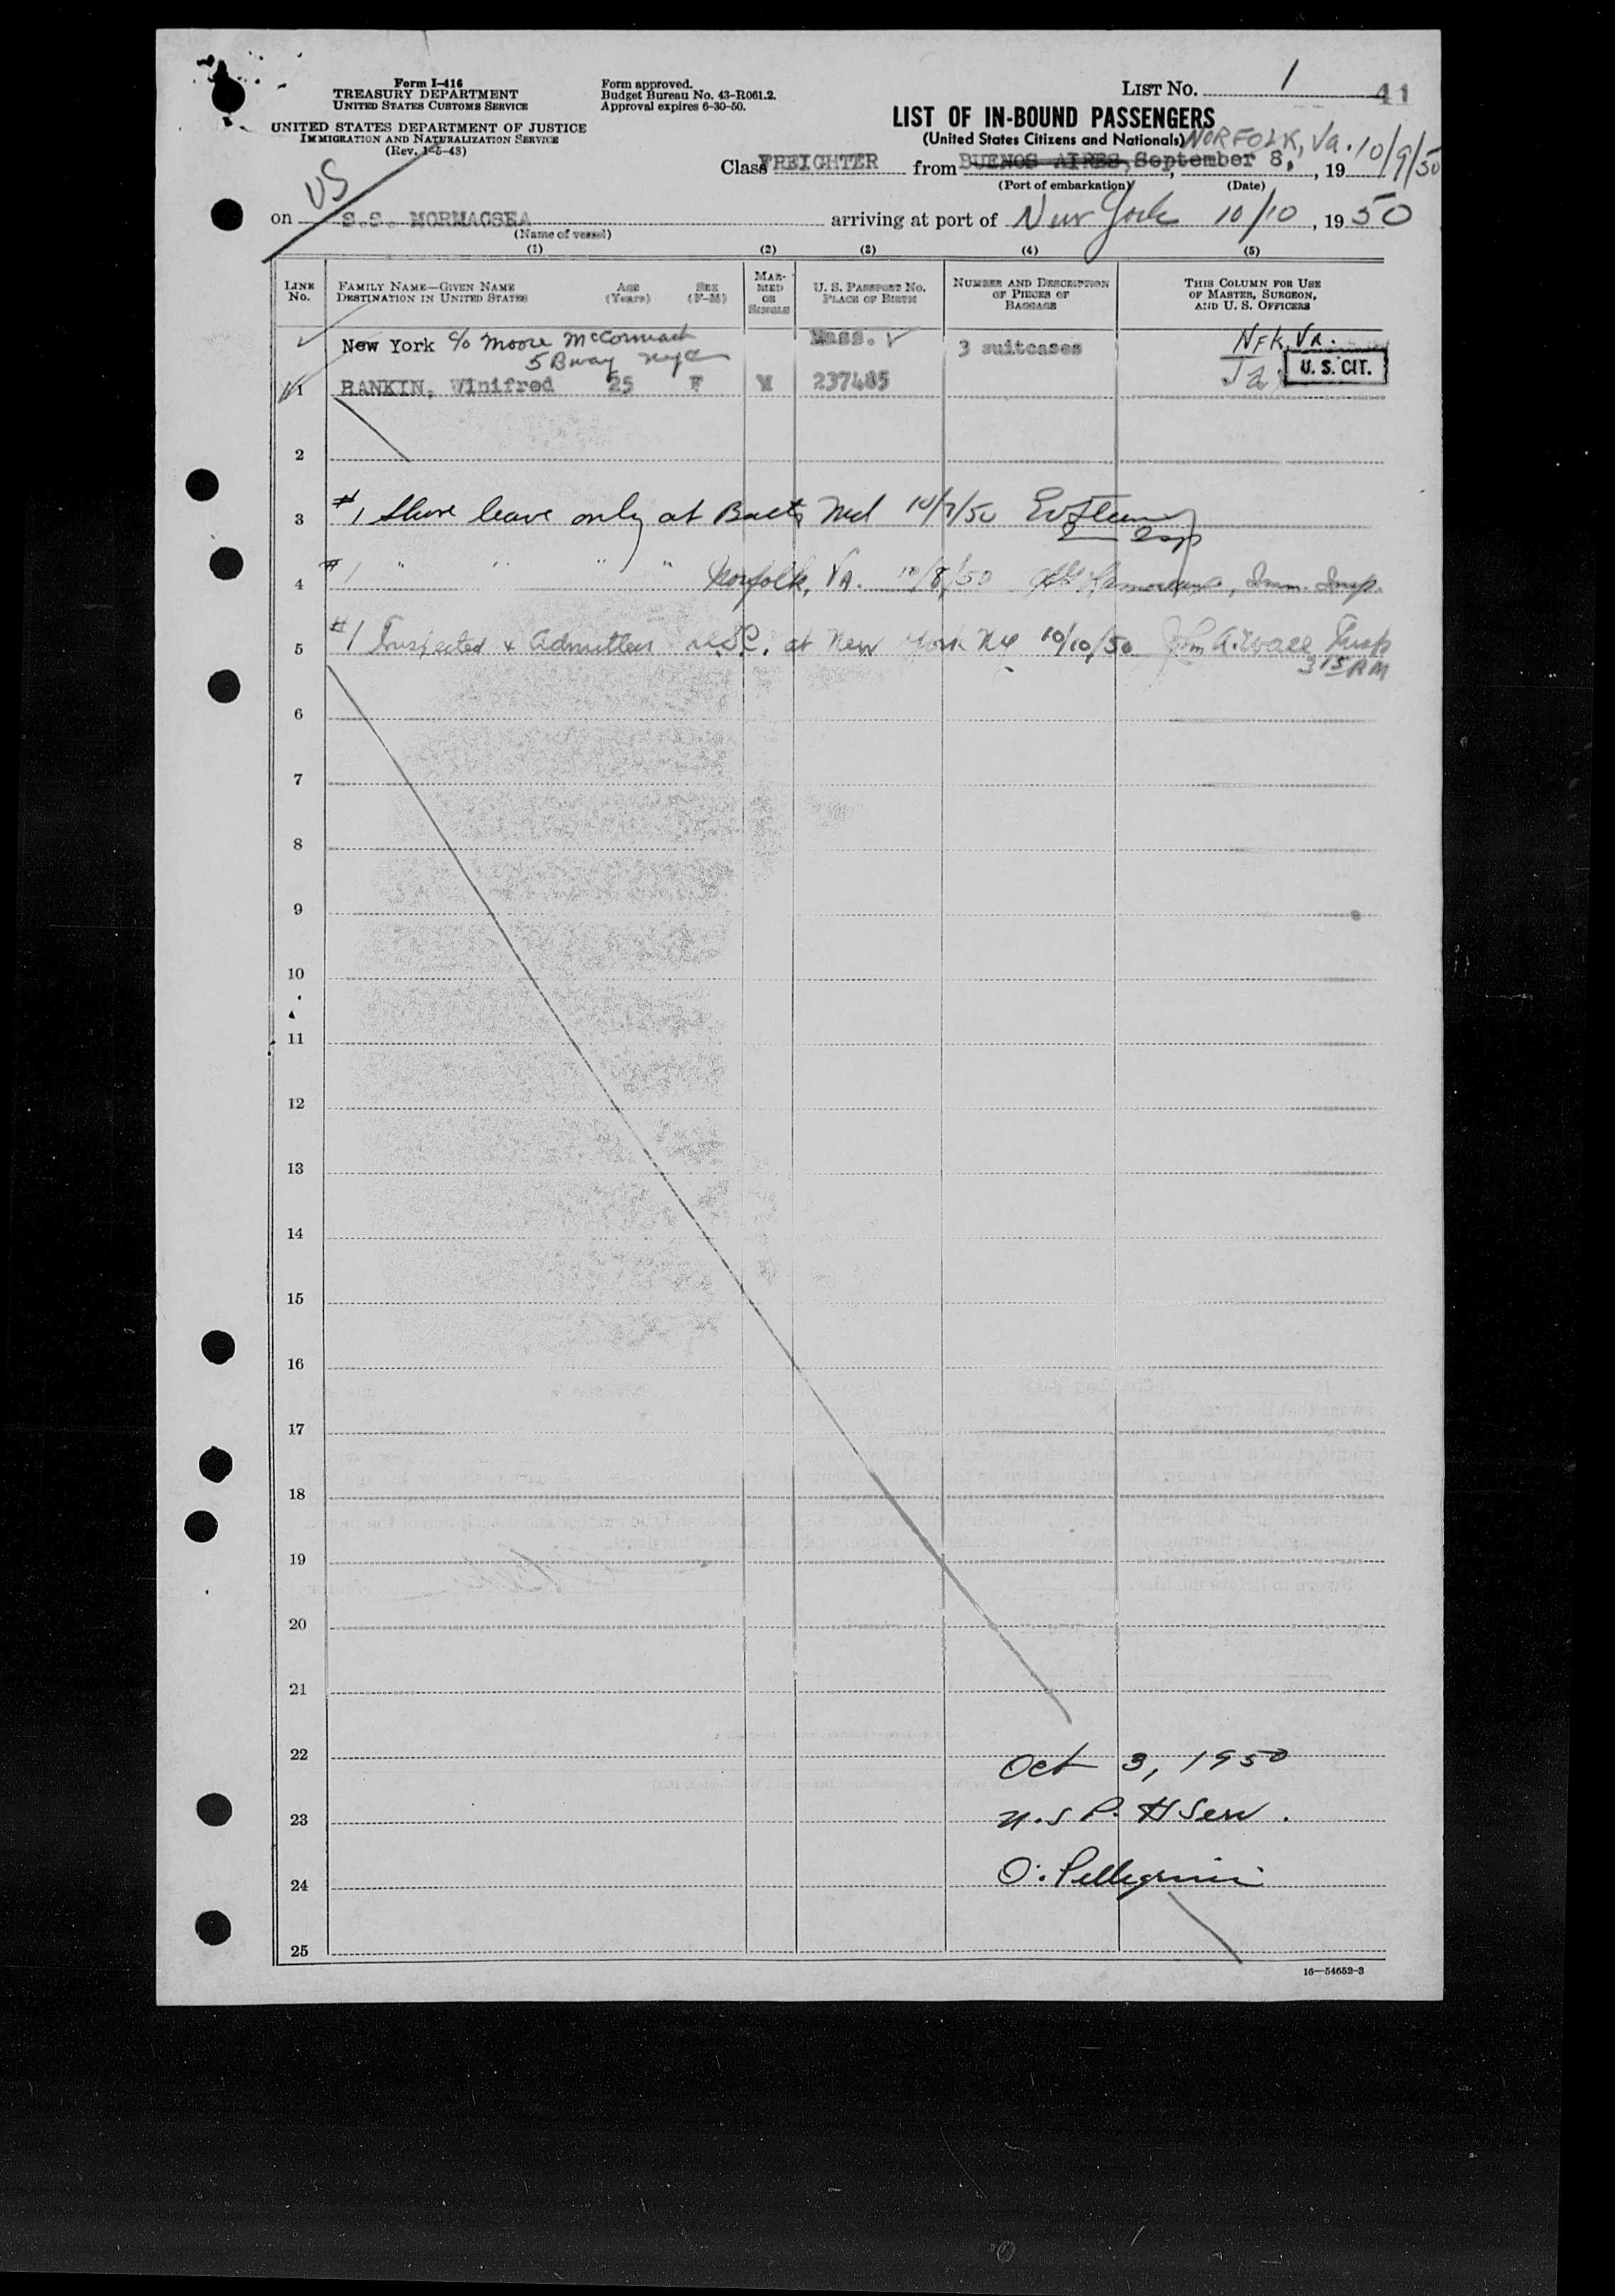 Form I-416
TREASURY DEPARTMENT
UNITED STATES CUSTOMS SERVICE
UNITED STATES DEPARTMENT OF JUSTICE
IMMIGRATION AND NATURALIZATION SERVICE
(Rev. 1-5-48)
Form approved.
Budget Bureau No. 43-R061.2.
Approval expires 6-30-50.
LIST No. 1 41
LIST OF IN-BOUND PASSENGERS
(United States Citizens and Nationals) NORFOLK, Va. 10/9/50
Class FREIGHTER from BUENOS AIRES, September 8, , 19
(Port of embarkation) (Date)
US
on S.S. MORMACSEA arriving at port of New York 10/10, 1950
(Name of vessel)
(1) (2) (3) (4) (5)
LINE No. FAMILY NAME—GIVEN NAME DESTINATION IN UNITED STATES AGE (Years) SEX (F-M) MARRIED OR SINGLE U. S. PASSPORT No. PLACE OF BIRTH NUMBER AND DESCRIPTION OF PIECES OF BAGGAGE THIS COLUMN FOR USE OF MASTER, SURGEON, AND U. S. OFFICERS
New York c/o Moore McCormack Mass. 3 suitcases NFK, VA.
5 Bway NYC
1 RANKIN, Winifred 25 F M 237485 U. S. CIT.
2
3 #1 Shore leave only at Balto Md 10/7/50
4 #1 " " " " Norfolk, VA. 10/8/50 Imm. Insp.
5 #1 Inspected & Admitted U.S.C. at New York NY 10/10/50 John A. Insp
3 15 AM
6
7
8
9
10
11
12
13
14
15
16
17
18
19
20
21
22 Oct 3, 1950
23 U.S P. H Serv.
24 O. Pellegrini
25
16—54652-3